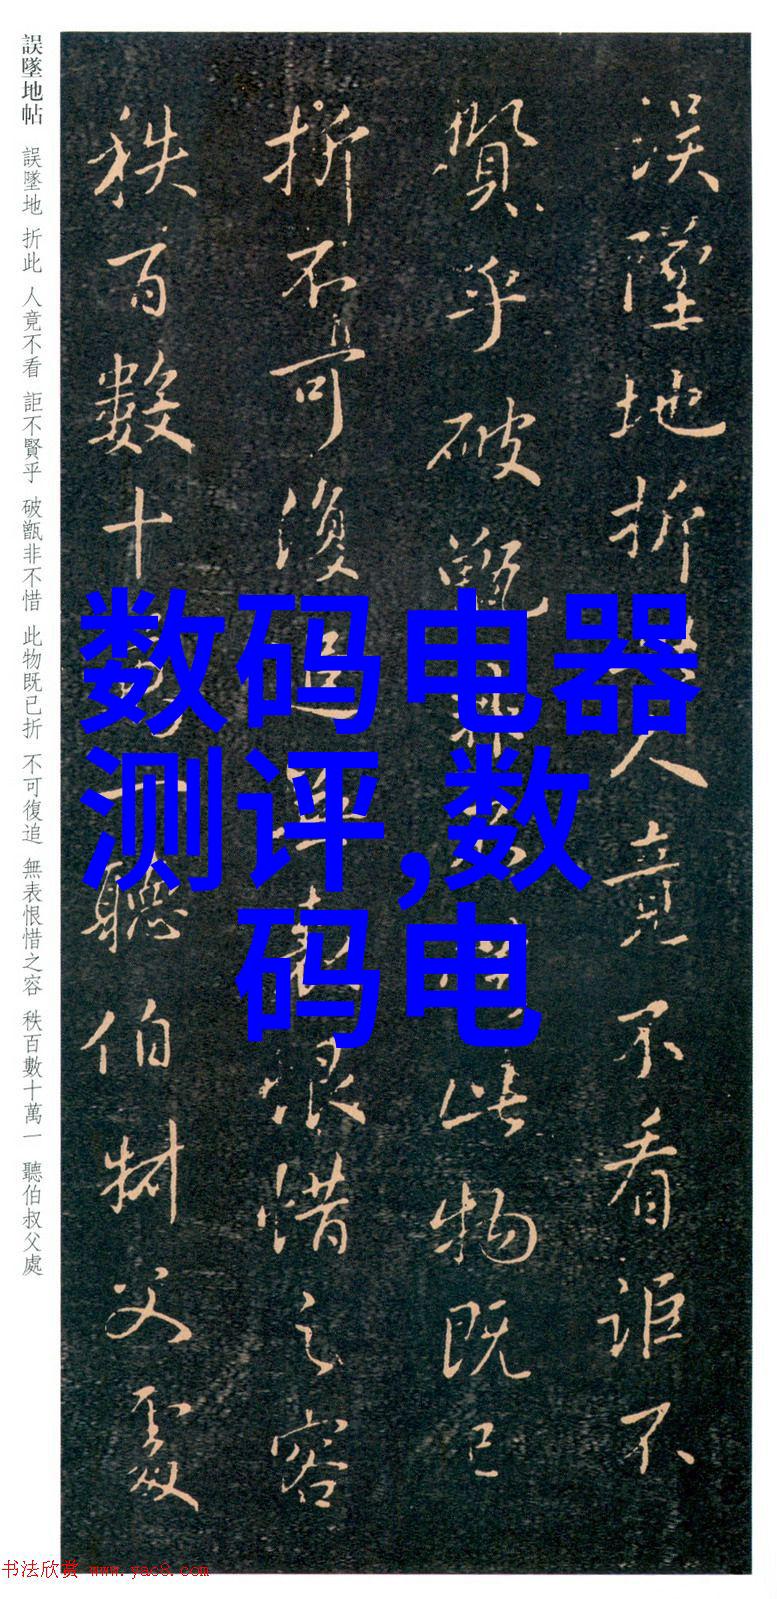 誤墜地折此人竟不看詎不
賢乎破甑非不惜此物既已
折不可復追無表恨惜之容
秩百數十萬一聽伯叔父處
誤墜地帖 誤墜地 折此 人竟不看 詎不賢乎 破甑非不惜 此物既已折 不可復追 無表恨惜之容 秩百數十萬一 聽伯叔父處
数码电器
测评,数
码电
书法欣赏 www.yac8.com